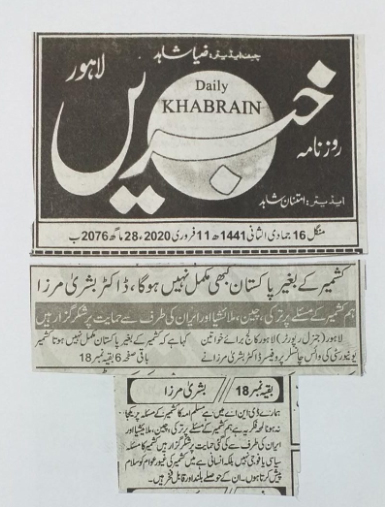 چیف ایڈیٹر: ضیا شاہد
لاہور
Daily
KHABRAIN
خبریں
روزنامہ
ایڈیٹر: امتنان شاہد
منگل 16 جمادی الثانی 1441ھ 11 فروری 2020، 28 ماگھ 2076 ب
کشمیر کے بغیر پاکستان کبھی مکمل نہیں ہوگا، ڈاکٹر بشریٰ مرزا
ہم کشمیر کے مسئلے پر ترکی، چین، ملائشیا اور ایران کی طرف سے حمایت پر شکر گزار ہیں
لاہور (جنرل رپورٹر) لاہور کالج برائے خواتین
یونیورسٹی کی وائس چانسلر پروفیسر ڈاکٹر بشریٰ مرزا نے
کہا ہے کہ کشمیر کے بغیر پاکستان مکمل نہیں ہوتا کشمیر
باقی صفحہ 6 بقیہ نمبر 18
بقیہ نمبر 18 // بشریٰ مرزا
ہمارے ڈی این اے میں ہے مسلم امہ کا کشمیر کے مسئلہ پر یکجا
نہ ہونا لمحہ فکریہ ہے ہم کشمیر کے مسئلے پر ترکی، چین، ملائیشیا اور
ایران کی طرف سے کی گئی حمایت پر شکر گزار ہیں کشمیر کا مسئلہ
سیاسی یا فوجی نہیں بلکہ انسانی ہے میں کشمیر کی غیور عوام کو سلام
پیش کرتا ہوں۔ ان کے حوصلے بلند اور قابل فخر ہیں۔